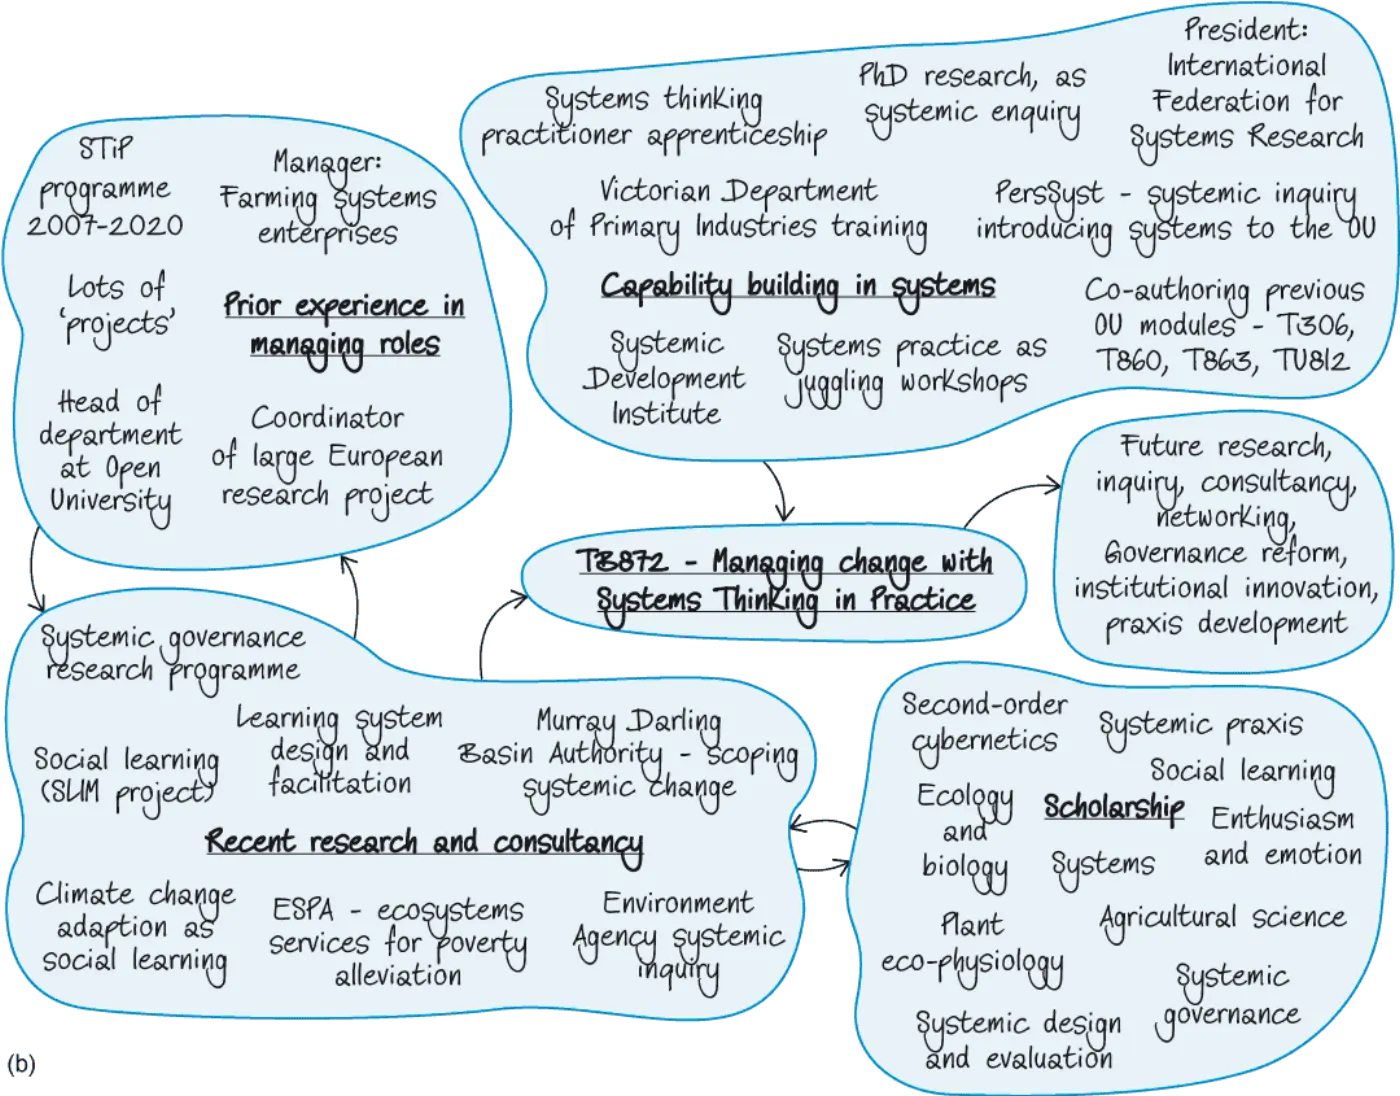 STiP
programme
2007-2020
Manager:
Farming systems
enterprises
Lots of
‘projects’
Prior experience in
managing roles
Head of
department
at Open
University
Coordinator
of large European
research project
Systems thinking
practitioner apprenticeship
PhD research, as
systemic enquiry
President:
International
Federation for
Systems Research
Victorian Department
of Primary Industries training
PersSyst - systemic inquiry
introducing systems to the OU
Capability building in systems
Co-authoring previous
OU modules - T306,
T860, T863, TU812
Systemic
Development
Institute
Systems practice as
juggling workshops
TB872 - Managing change with
Systems Thinking in Practice
Future research,
inquiry, consultancy,
networking,
Governance reform,
institutional innovation,
praxis development
Systemic governance
research programme
Learning system
design and
facilitation
Murray Darling
Basin Authority - scoping
systemic change
Social learning
(SLIM project)
Recent research and consultancy
Climate change
adaption as
social learning
ESPA - ecosystems
services for poverty
alleviation
Environment
Agency systemic
inquiry
Second-order
cybernetics
Systemic praxis
Social learning
Ecology
and
biology
Scholarship
Enthusiasm
and emotion
Systems
Plant
eco-physiology
Agricultural science
Systemic
governance
Systemic design
and evaluation
(b)